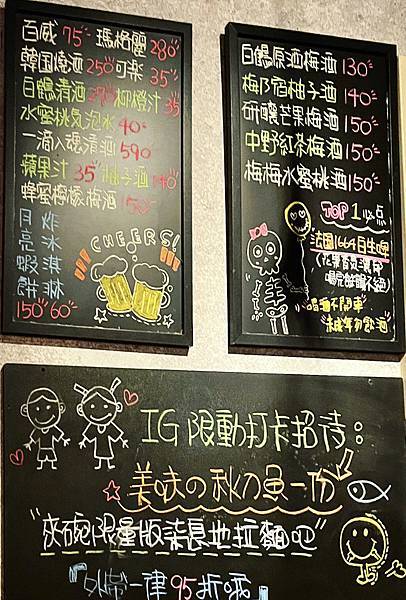 百威 75 瑪格麗 280
韓国燒酒 250 可樂 35
白鶴清酒 柳橙汁 35
水蜜桃気泡水 40
一滴入魂清酒 590
蘋果汁 35 柚子酒 140
蜂蜜檸檬梅酒 150
月 炸
亮 冰
蝦 淇
餅 淋
150 60
CHEERS!
白鶴原酒梅酒 130
梅乃宿柚子酒 140
研釀芒果梅酒 150
中野紅茶梅酒 150
梅梅水蜜桃酒 150
TOP 1 必点
法國1664白生啤
(花果香気濃郁
喝完嘴饞不絕)
喝酒不開車
未成年勿飲酒
IG 限動打卡招待:
美味の秋刀魚一份
"夾碗限量版柒息地拉麵吧"
『外帶一律95折哦』